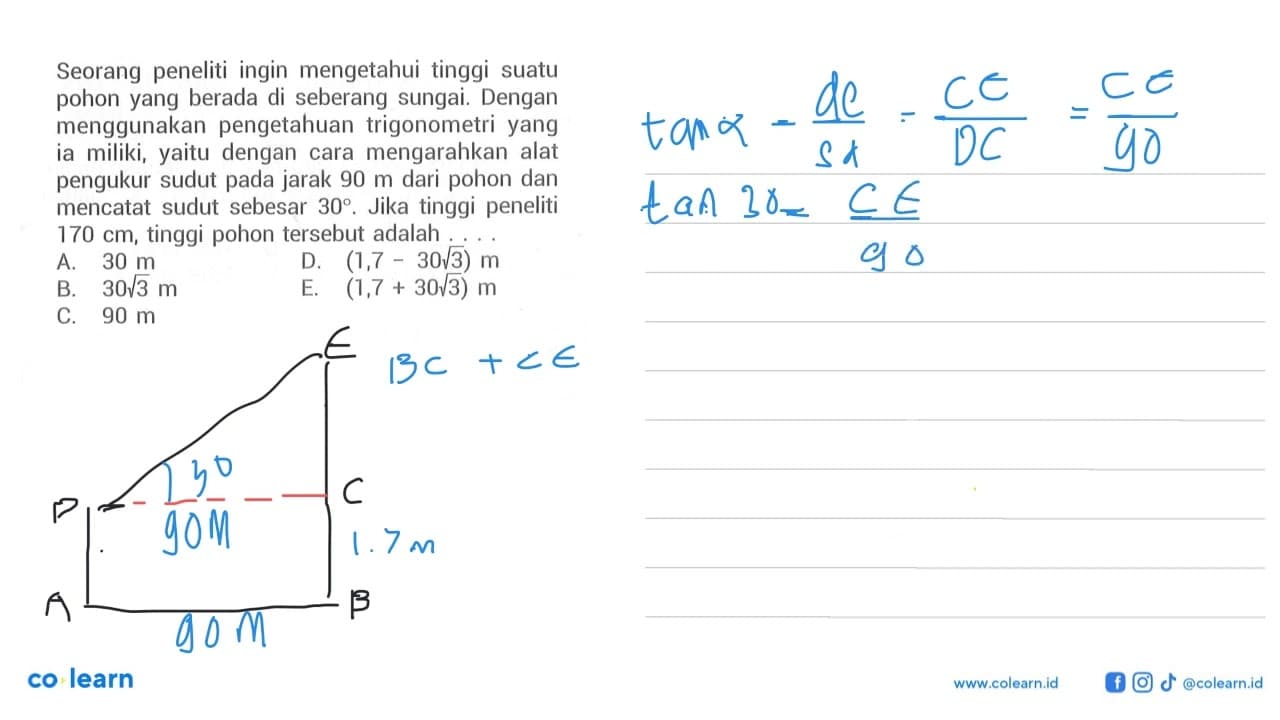 Seorang peneliti ingin mengetahui tinggi suatu
pohon yang berada di seberang sungai. Dengan
menggunakan pengetahuan trigonometri yang
ia miliki, yaitu dengan cara mengarahkan alat
pengukur sudut pada jarak 90 m dari pohon dan
mencatat sudut sebesar 30°. Jika tinggi peneliti
170 cm, tinggi pohon tersebut adalah . . . .
A. 30 m
B. 30√3 m
C. 90 m
D. (1,7 − 30√3) m
E. (1,7 + 30√3) m
E
BC + CE
30
D
C
90M
1.7 m
A
B
90 M
tan α = de/sa = CE/DC = CE/90
tan 30 = CE/90
co learn
www.colearn.id
@colearn.id